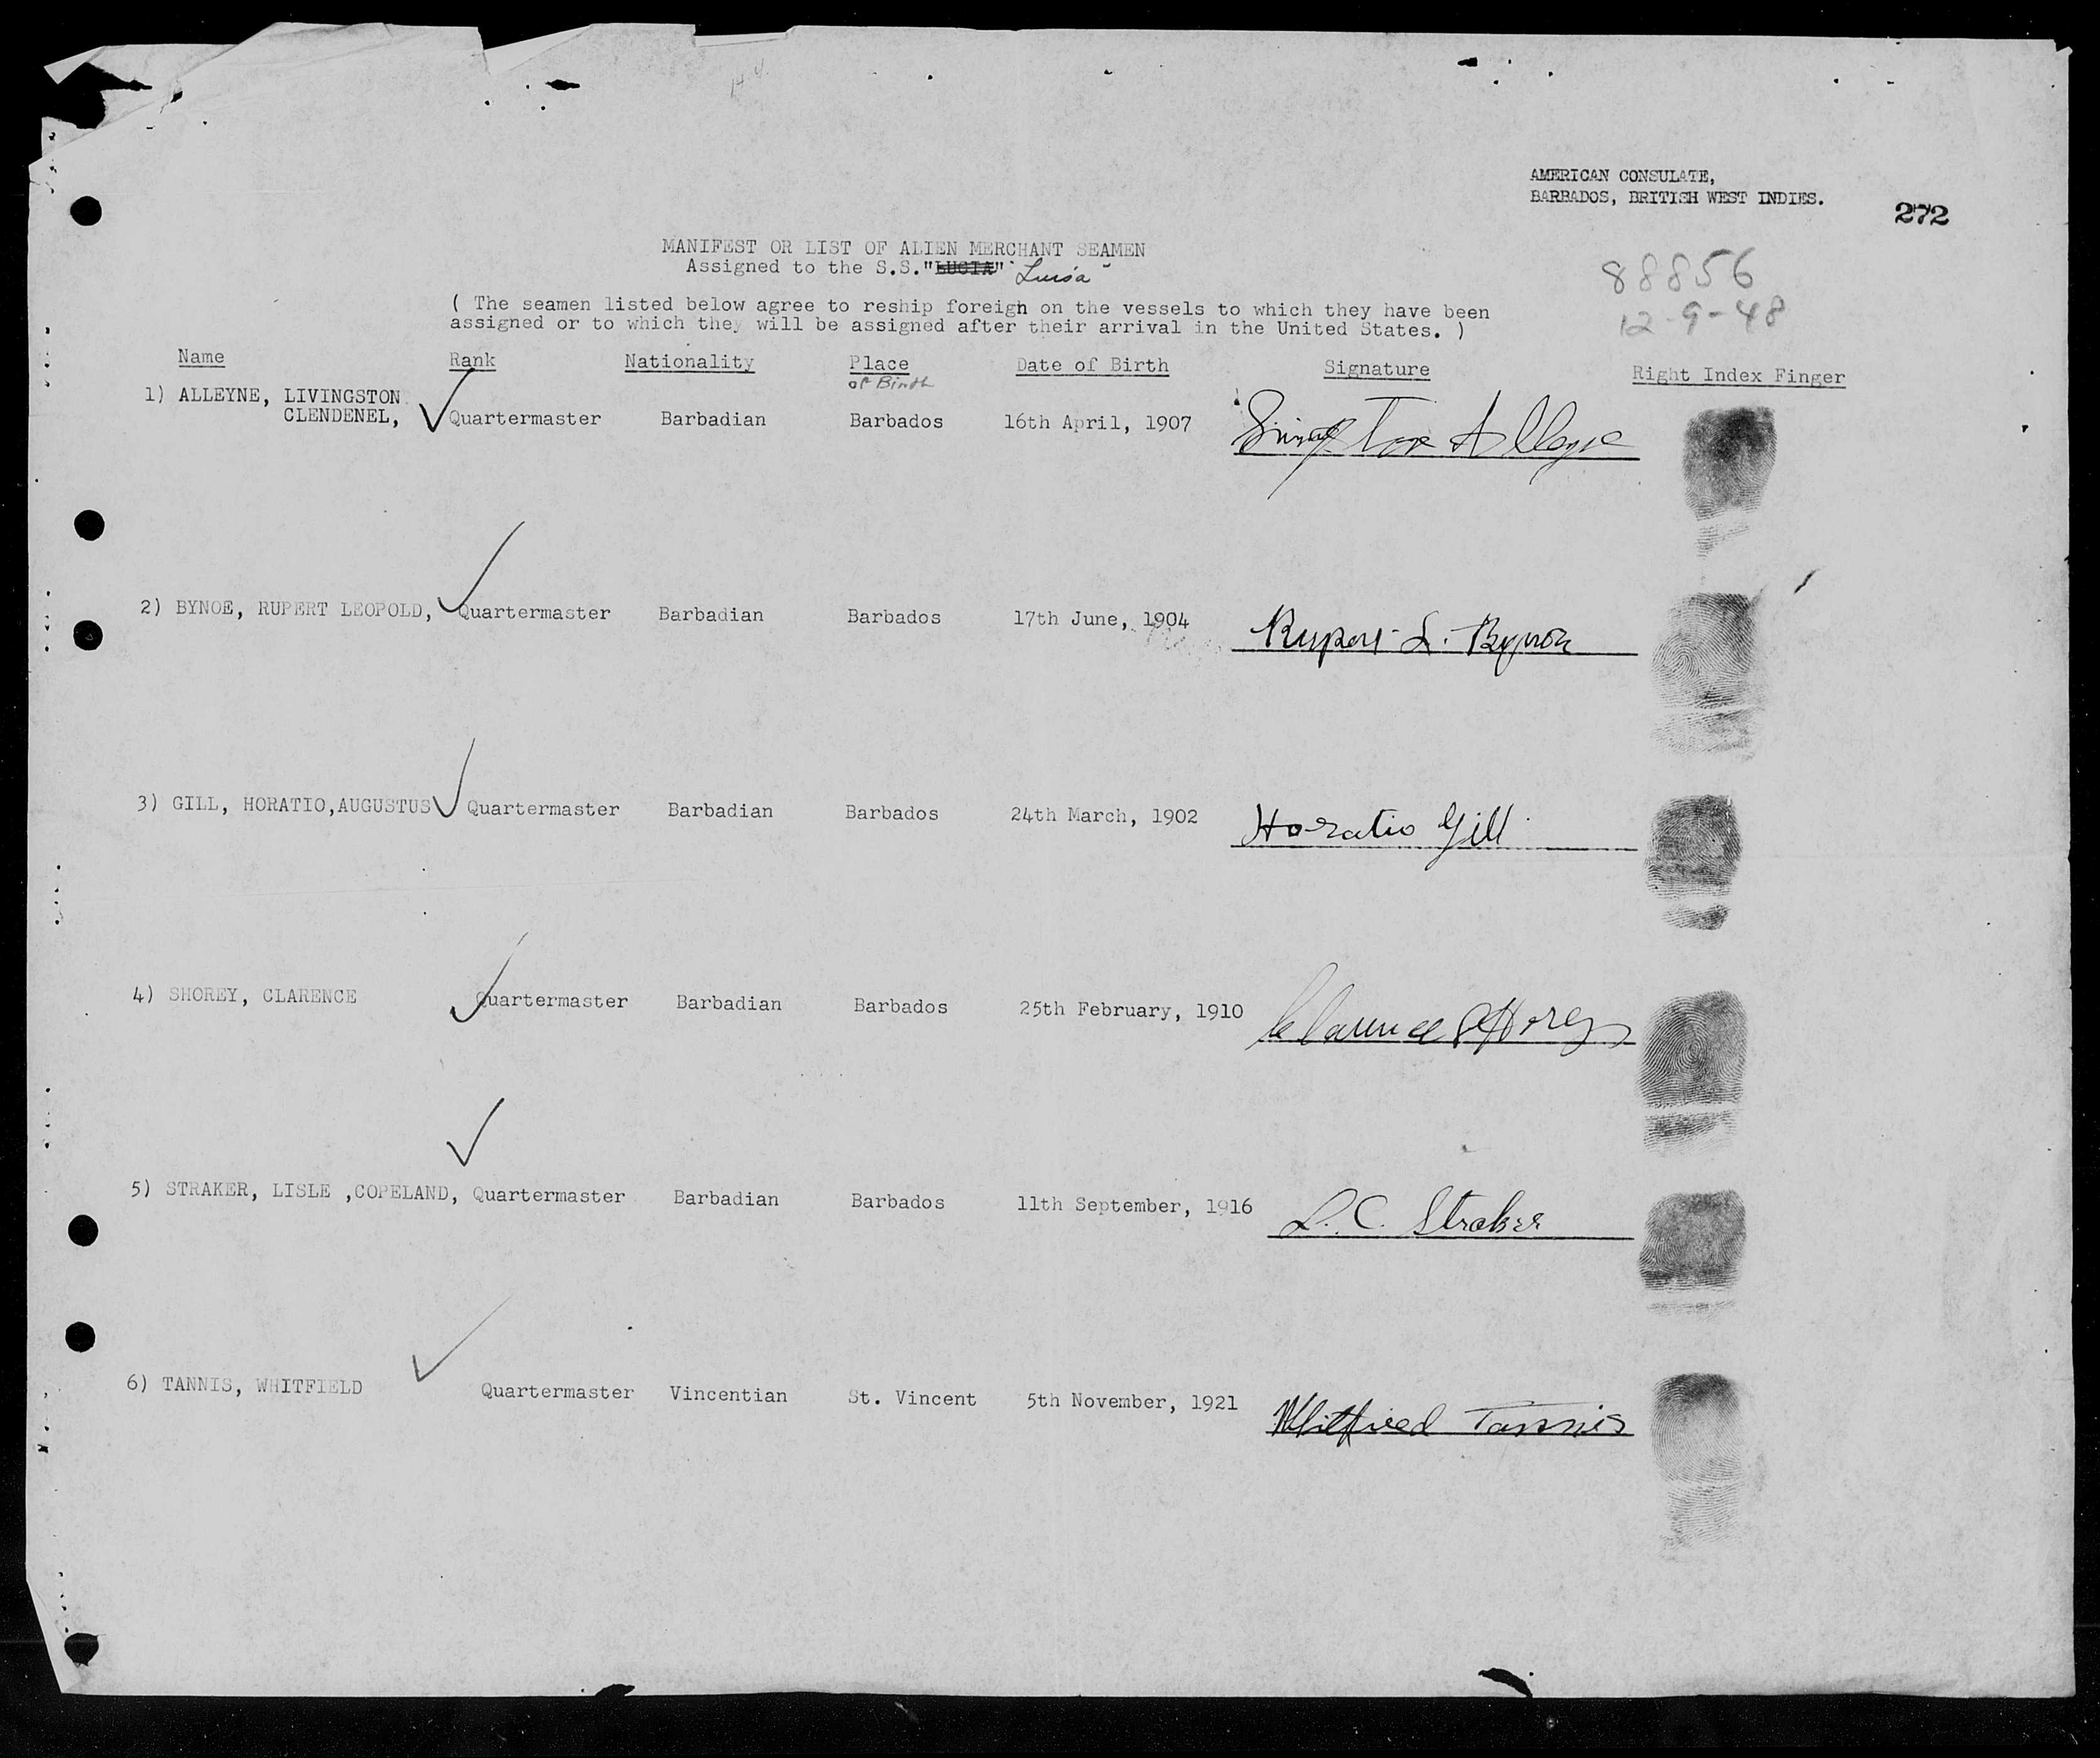 14-4
AMERICAN CONSULATE,
BARBADOS, BRITISH WEST INDIES.
272
88856
12-9-48
MANIFEST OR LIST OF ALIEN MERCHANT SEAMEN
Assigned to the S.S."LUCIA" "Luisa"
( The seamen listed below agree to reship foreign on the vessels to which they have been
assigned or to which they will be assigned after their arrival in the United States. )
Name Rank Nationality Place of Birth Date of Birth Signature Right Index Finger
1) ALLEYNE, LIVINGSTON
CLENDENEL, Quartermaster Barbadian Barbados 16th April, 1907 Alleyne
2) BYNOE, RUPERT LEOPOLD, Quartermaster Barbadian Barbados 17th June, 1904 Rupert L. Bynoe
3) GILL, HORATIO,AUGUSTUS Quartermaster Barbadian Barbados 24th March, 1902 Horatio Gill
4) SHOREY, CLARENCE Quartermaster Barbadian Barbados 25th February, 1910 Clarence Shorey
5) STRAKER, LISLE ,COPELAND, Quartermaster Barbadian Barbados 11th September, 1916 L. C. Straker
6) TANNIS, WHITFIELD Quartermaster Vincentian St. Vincent 5th November, 1921 Whitfield Tannis